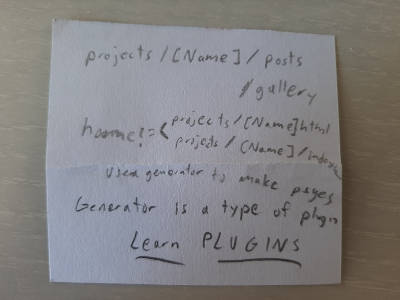 projects / [Name] / posts
/ gallery
home? = < projects / [Name]html
projets / [Name] / index
Used generator to make pages
Generator is a type of plugin
Learn PLUGINS